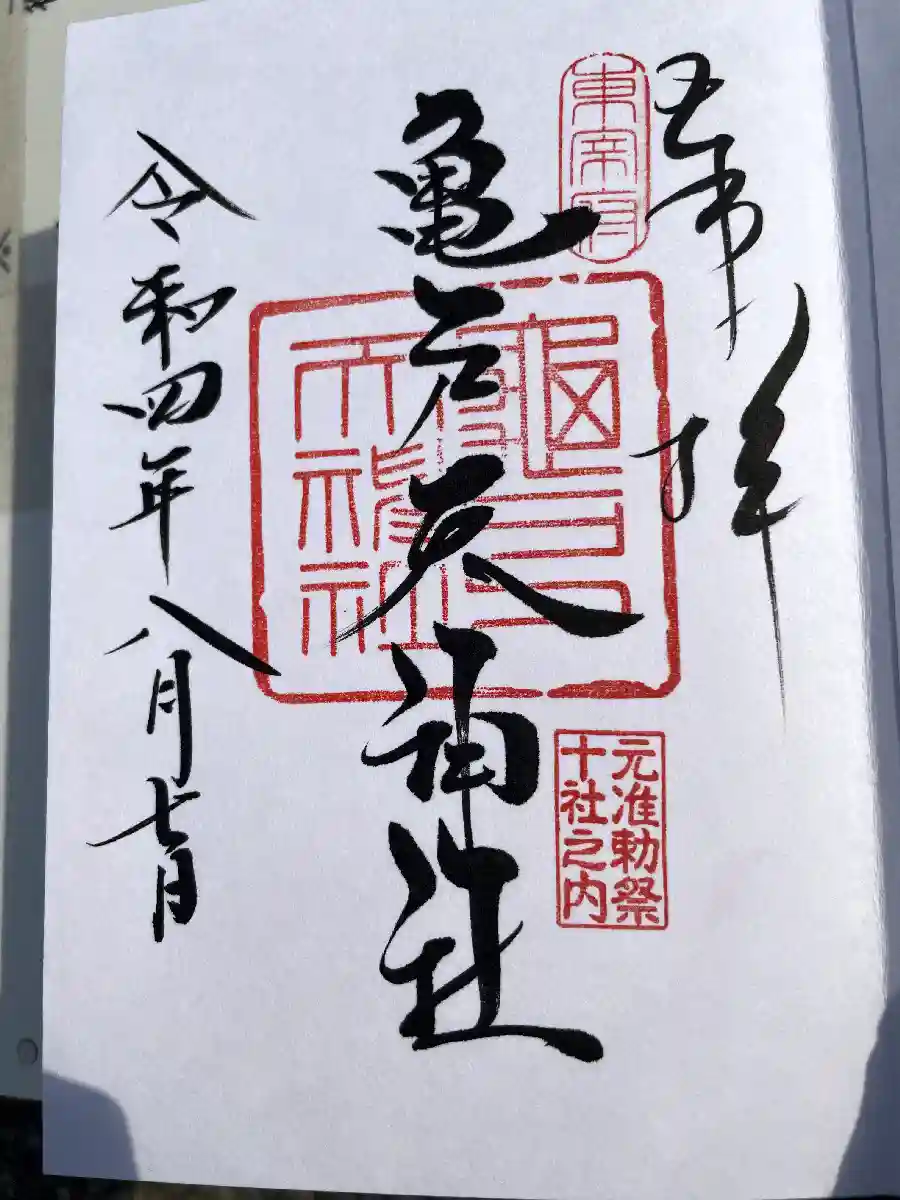 奉拝
東宰府
亀戸天神社
龜戸
天神社
元准勅祭
十社之内
令和四年八月七日